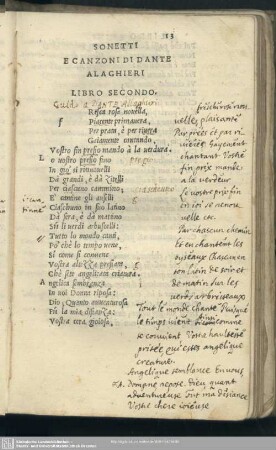 113
SONETTI
E CANZONI DI DANTE
ALAGHIERI
LIBRO SECONDO.
Guido a Dante Allaghieri
Fresca rosa novella,
Piacente primavera,
Per prata, e per rivera
Gaiamente cantando,
Vostro fin presio mando à la verdura.
L o vostro presio fino
In gio' si rinovelli
Da grandi, e da Zitelli
Per ciascuno cammino,
E' cantine gli auselli
Ciascheuno in suo latino
Da sera, e da matino
Su li verdi arbuscelli:
Tutto lo mondo canti,
Po' che lo tempo vene,
Si come si convene
Vostra altezza presiata
Che sete angelicata criatura.
A ngelica sembranza
In voi Donna riposa:
Dio, quanto aventurosa
Fu la mia disianza:
Vostra cera gioiosa,
velle plaisante
Par prées et par ri
chantant Vostre
fin prix mande
a la verdeur
Le vostre prix fin
velle etc.
Par chascun chemin
Et en chantent les
oyseaux chascun en
son latin de soir et
de matin sur les
verds arbrisseaux
Tout le monde chante Puisque
le temps vient
se convient Vostre haultesse
prisée qui estes angelique
creature.
Angelique semblance En vous
repose. Dieu quant
adventureuse fut ma désiance
Vostre chere joieuse